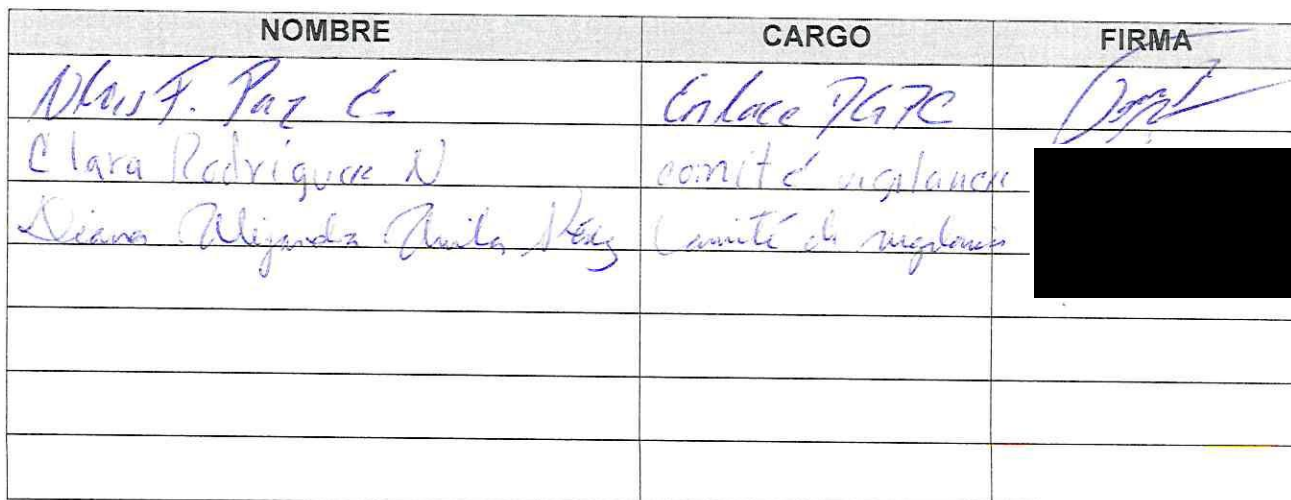 NOMBRE CARGO FIRMA
F. Paz E. Enlace
Clara Rodriguez N comité vigilancia
Diana Alejandra Avila Pérez Comité de vigilancia